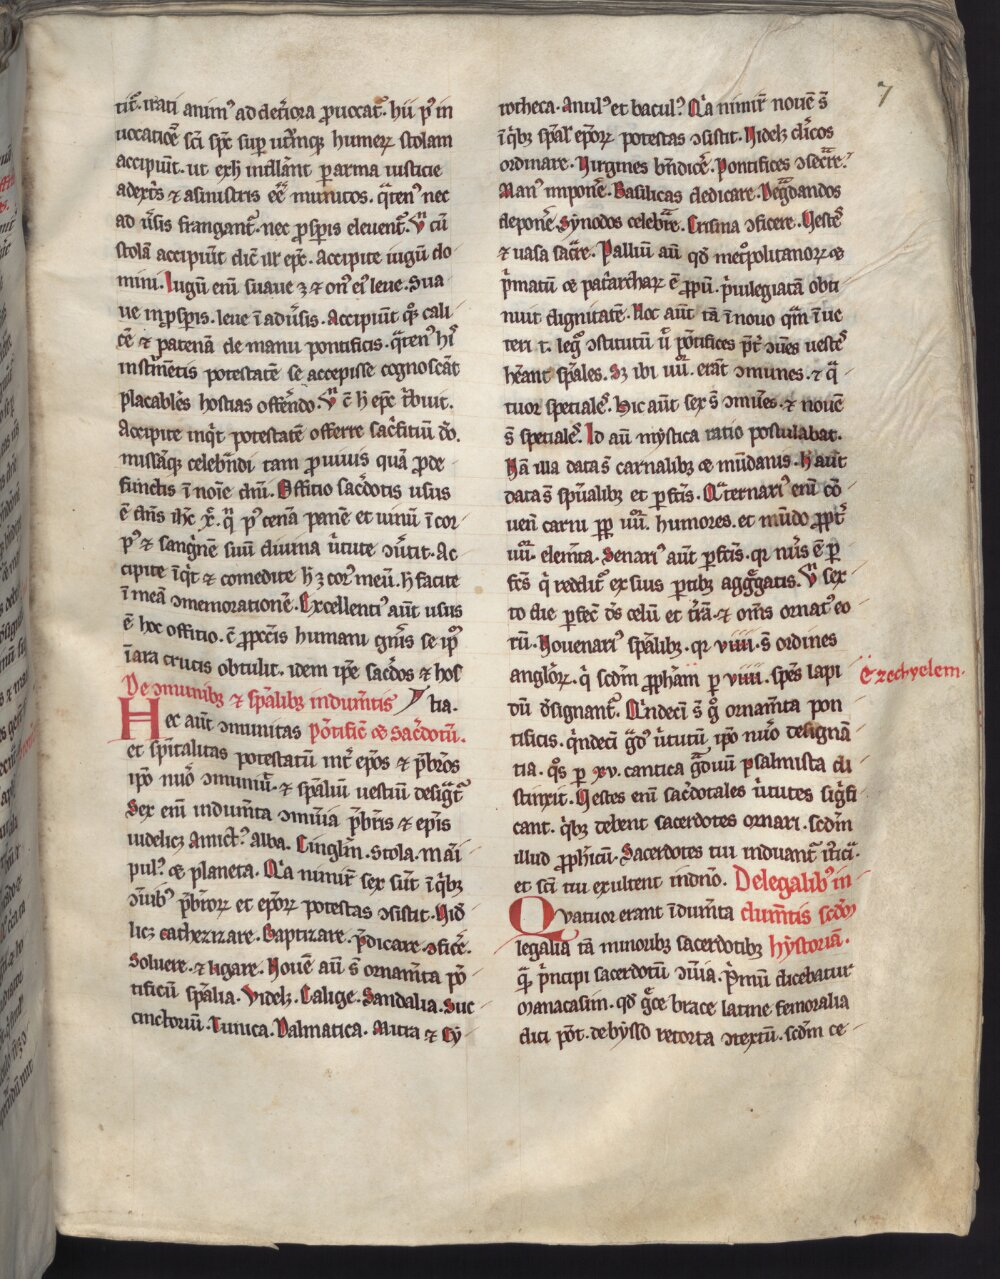 tit̄. irati anim᷒ ad det̄iora ꝓuocat̄. hii p᷒ in
uocatiōē sci sp̄c sup̄ utrūq; humeꝝ stolam
accipiūt. ut exh intllānt ꝑ arma iusticie
adext̄s ⁊ asinistris eē̄ munitos. q̄ten᷒ nec
ad ūsis frangant̄. nec ꝓsp̄is eleuent̄. Vn̄ cū
stolā accipiūt dic̄ ill᷒ ep̄c. Accipite iugū do
mini. Iugū enī suaue ⁊ on᷒ ei᷒ leue. Sua
ue inꝓsꝑis. leue ī adūsis. Accipiūt q̊ꝫ cali
cē ⁊ patenā de manu pontificis. q̄ten᷒ hiſ
instrm̄etis potestatē se accepisse cognoscāt
placabl̄es hostias offer̄ndo. Vn̄ ē h̄ ep̄c t̄buit.
Accipite inq̇t potestatē offerre sac̄fitiū dō.
missāq; celebn̄di tam ꝓ uiuis quā ꝓ de
functis ī noīe dn̄i. Offitio sac̄dotis usus
ē dn̄s ih̄c x̄. q̄n p᷒ cenā panē et uinū ī cor
p᷒ ⁊ sangnē suū diuina ūtute ꝯūtit. Ac
cipite īq̇t ⁊ comedite h̄ ē cor᷒ meū. h̄ facite
ī meā ꝯmemorationē. Excellenti᷒ aūt usus
ē hoc offitio. c̄ ꝓ pcc̄is humani gn̄is se ip̄o
ī ara crucis obtulit. idem ip̄e sac̄dos ⁊ hos
De ꝯmunibꝫ ⁊ sp̄alibꝫ indum̄tis tia.
Hec aūt ꝯmunitas pōtific̄ ⁊ sac̄dotū.
et sp̄italitas potestatū int̄ ep̄os ⁊ p̄bros
ip̄o nuō ꝯmuniū. ⁊ sp̄aliū uestiū desiḡt̄
Sex enī indum̄ta ꝯmūia p̄bris ⁊ ep̄is
uidelic; Amict᷒. Alba. Cinglm̄. Stola. Māi
pul᷒. ⁊ planeta. Qa nimir̄ sex sūt ī q̇bꝫ
ꝯīuib᷒ p̄broꝝ et ep̄oꝝ potestas ꝯsistit. Vid̄
lic; cathezizare. Baptizare. p̄dicare. ꝯfic̄e.
Soluere. ⁊ ligare. Nouē aū s̄ ornam̄ta pō
tificū sp̄alia. Videlꝫ. Calige. Sandalia. Suc
cinctoriū. Tunica. Dalmatica. Mitra ⁊ Cy
rotheca. Anul᷒ et bacul᷒. Qa nimir̄ nouē s̄
ī q̇bꝫ sp̄al᷒ ep̄oꝝ potestas ꝯsistit. Videlꝫ cl̄icos
ordinare. Virgines bn̄dicē. Pontifices ꝯsec̄re.
Man᷒ imponē. Basilicas dedicare. Deḡdandos
deponē. Synodos celebr̄e. Crisma ꝯficere. Vestes
⁊ uasa sac̄re. Palliū aūt qd̄ met᷒politanoꝝ ⁊
p̄matū ⁊ pat̄archaꝝ ē ꝓpū. p̄iulegiatā obti
nuit dignitatē. Hoc aūt tā ī nouo q̄m ī ue
teri t. leg̊ ꝯstitutū ū pōtifices p̄t ꝯm̄es ueste᷒
hēant sp̄ales. Sꝫ ibi .iiii. erāt ꝯmunes. ⁊ q̄
tuor speciale᷒. Hic aūt sex s̄ ꝯmūes. ⁊ nouē
s̄ speciale᷒. Id aū mystica ratio postulabat.
Nā illa data s̄ carnalibꝫ ⁊ mūdanis. h̄ aūt
data s̄ sp̄ualibꝫ et ꝑfc̄is. Q̄ternari᷒ enī cō
uen̄ carni ꝓꝑ .iiii. humores. et mūdo ꝓpt̄
.iiii. elem̄ta. Senari᷒ aūt ꝑfc̄is. qꝛ nūs ē ꝑ
fc̄s q̇ reddit̄ ex suis ꝑtibꝫ agg̊gatis. Vn̄ sex
to die ꝑfec̄ dꝰ celū et tr̄ā. ⁊ om̄s ornat᷒ eo
rū. Nouenari᷒ sp̄alibꝫ. qꝛ .viiii. s̄ ordines
angloꝝ. q̇ scdm̄ ꝓph̄am ꝑ .viiii. spēs lapi
Ezechyelem.
dū d̄signant̄. Q̇ndeci s̄ g̊ ornam̄ta pon
tificis. q̇ndeci ḡd᷒ ūtutū, ip̄o nūo designā
tia. q̊s ꝑ .xv. cantica g̊duū psalmista di
stinxit. Vestes enī sac̄dotales ūtutes sig̊fi
cant. q̇bꝫ debent sacerdotes ornari. scdm̄
illud ꝓph̄icū. Sacerdotes tui induant̄ iu᷒ticiā.
et sc̄i tui exultent indn̄o. De legalib᷒ in
Qvatuor erant īdum̄ta dum̄tis scdm̄
legalia tā minoribꝫ sacerdotibꝫ hystoriā.
q̄ p̄ncipi sacerdotū ꝯīuia. P̄mū dicebatur
Manacasim. qd̄ g̊ce brace latine femoralia
dici pōt. de bysso retorta ꝯtextū. scdm̄ ce
7